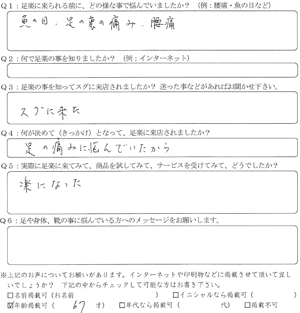 Q1：足楽に来られる前に、どの様な事で悩んでいましたか？（例：腰痛・魚の目など）
魚の目．足の裏の痛み．腰痛
Q2：何で足楽の事を知りましたか？（例：インターネット）
Q3：足楽の事を知ってスグに来店されましたか？ 迷った事などがあればお聞かせ下さい。
スグに来た
Q4：何が決めて（きっかけ）となって、足楽に来店されましたか？
足の痛みに悩んでいたから
Q5：実際に足楽に来てみて、商品を試してみて、サービスを受けてみて、どうでしたか？
楽になった
Q6：足や身体、靴の事に悩んでいる方へのメッセージをお願いします。
※上記のお声についてお願いがあります。インターネットや印刷物などに掲載させて頂いて宜し
いでしょうか？ 下記の中からチェックして可能な方はお書き下さい。
□名前掲載可（お名前 ） □イニシャルなら掲載可（ ）
☑年齢掲載可（ 67 才） □年代なら掲載可（ 代） □掲載不可